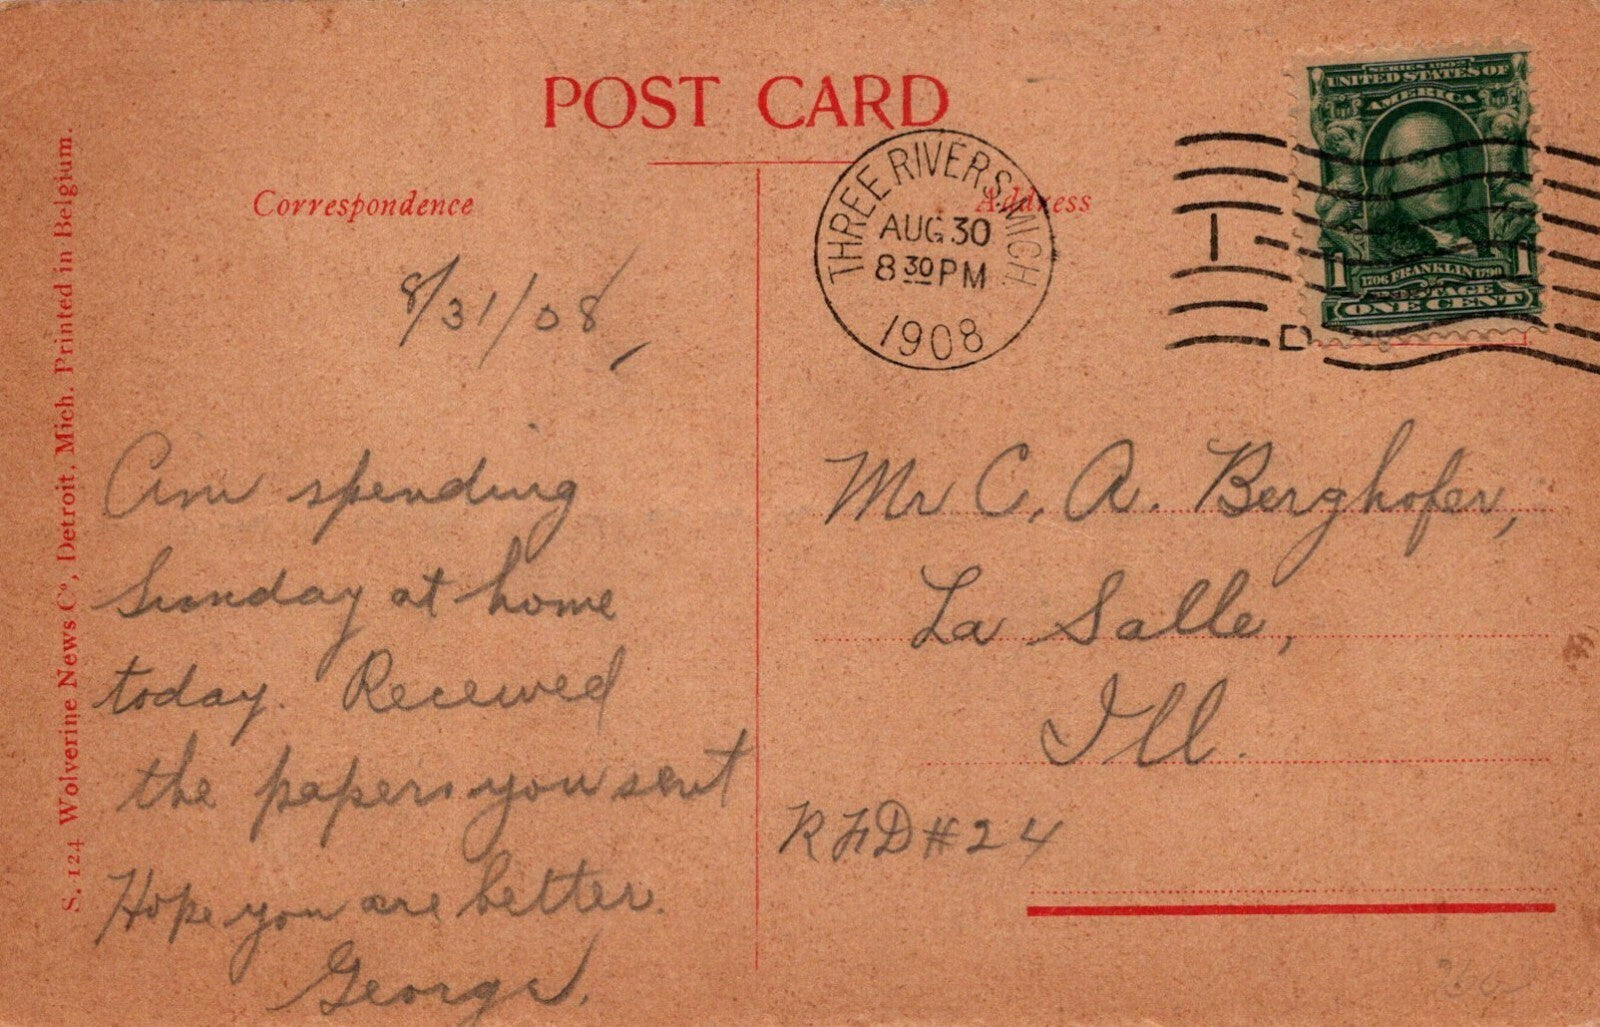 POST CARD
Correspondence
Address
S. 124 Wolverine News Co, Detroit, Mich. Printed in Belgium.
THREE RIVERS. MICH.
AUG 30
8 30 PM
1908
SERIES 1902
UNITED STATES OF
AMERICA
1 1
1706 FRANKLIN 1790
POSTAGE
ONE CENT
1
D
8/31/08
Am spending
Sunday at home
today. Received
the papers you sent
Hope you are better.
George.
Mr C. A. Berghofer,
La Salle,
Ill.
RFD#24